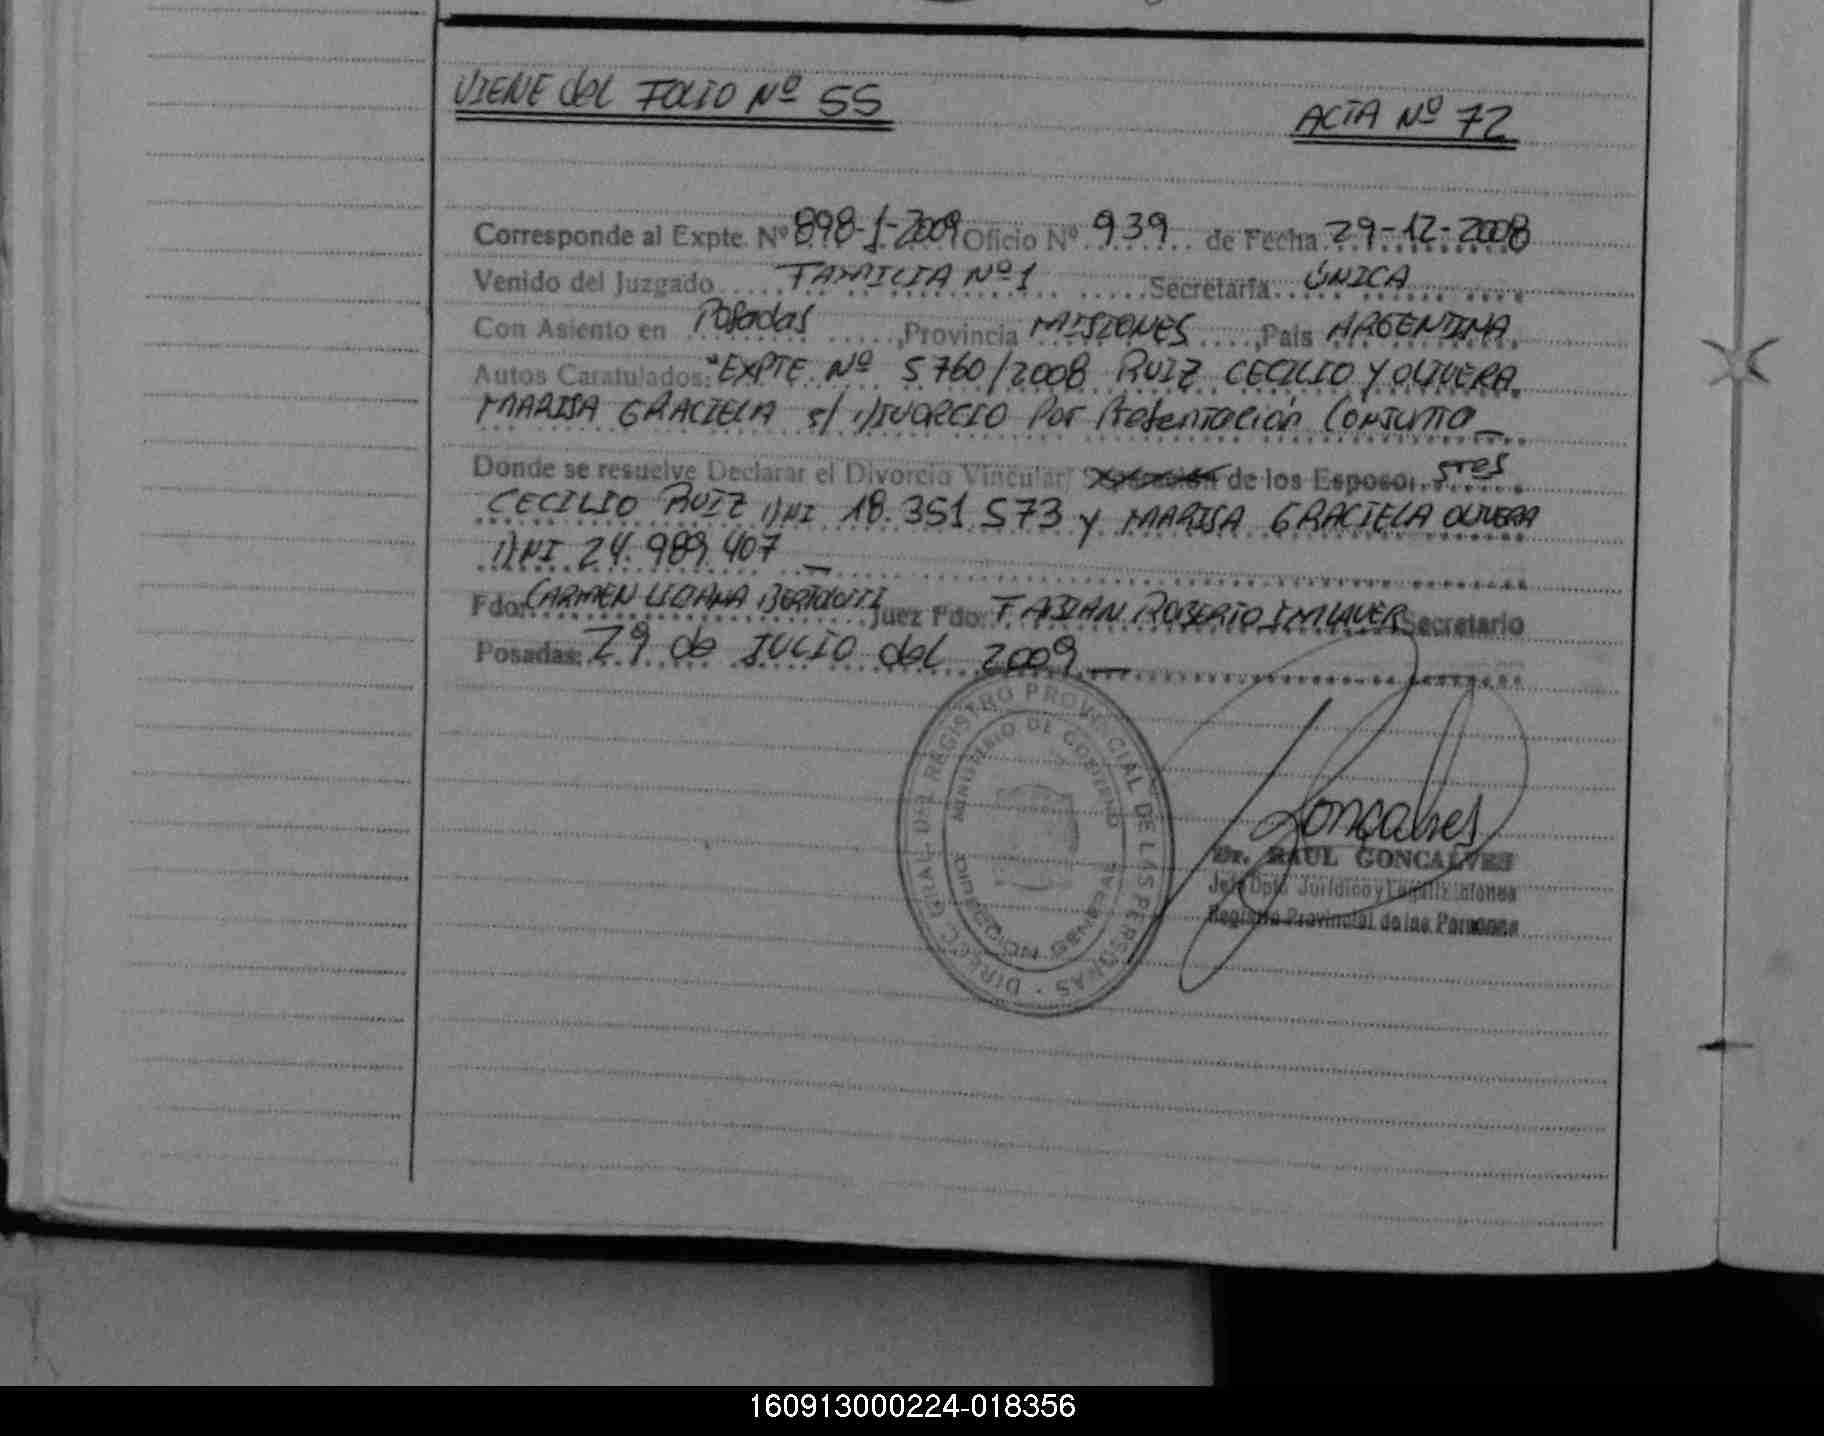 VIENE del FOLIO Nº 55
ACTA Nº 72
Corresponde al Expte. Nº 898-J-2009 Oficio Nº 939 de Fecha 29-12-2008
Venido del Juzgado FAMILIA Nº 1 Secretaría ÚNICA
Con Asiento en Posadas, Provincia MISIONES, País ARGENTINA
Autos Caratulados: "EXPTE Nº 5760/2008 RUIZ CECILIO Y OLIVERA
MARISA GRACIELA s/ DIVORCIO Por Presentación Conjunta
Donde se resuelve Declarar el Divorcio Vincular/ Separación de los Esposos: Sres
CECILIO RUIZ DNI 18.351.573 y MARISA GRACIELA OLIVERA
DNI 24.989.407
Fdo: CARMEN LILIANA BERTOLOTTI Juez Fdo: FABIAN ROBERTO Secretario
Posadas: 29 de JULIO del 2009
DIREC. GRAL. DEL REGISTRO PROVINCIAL DE LAS PERSONAS
MINISTERIO DE GOBIERNO
DIRECCION GENERAL
Goncalves
Dr. RAUL GONCALVES
Jefe Dpto Jurídico y Legalizaciones
Registro Provincial de las Personas
160913000224-018356